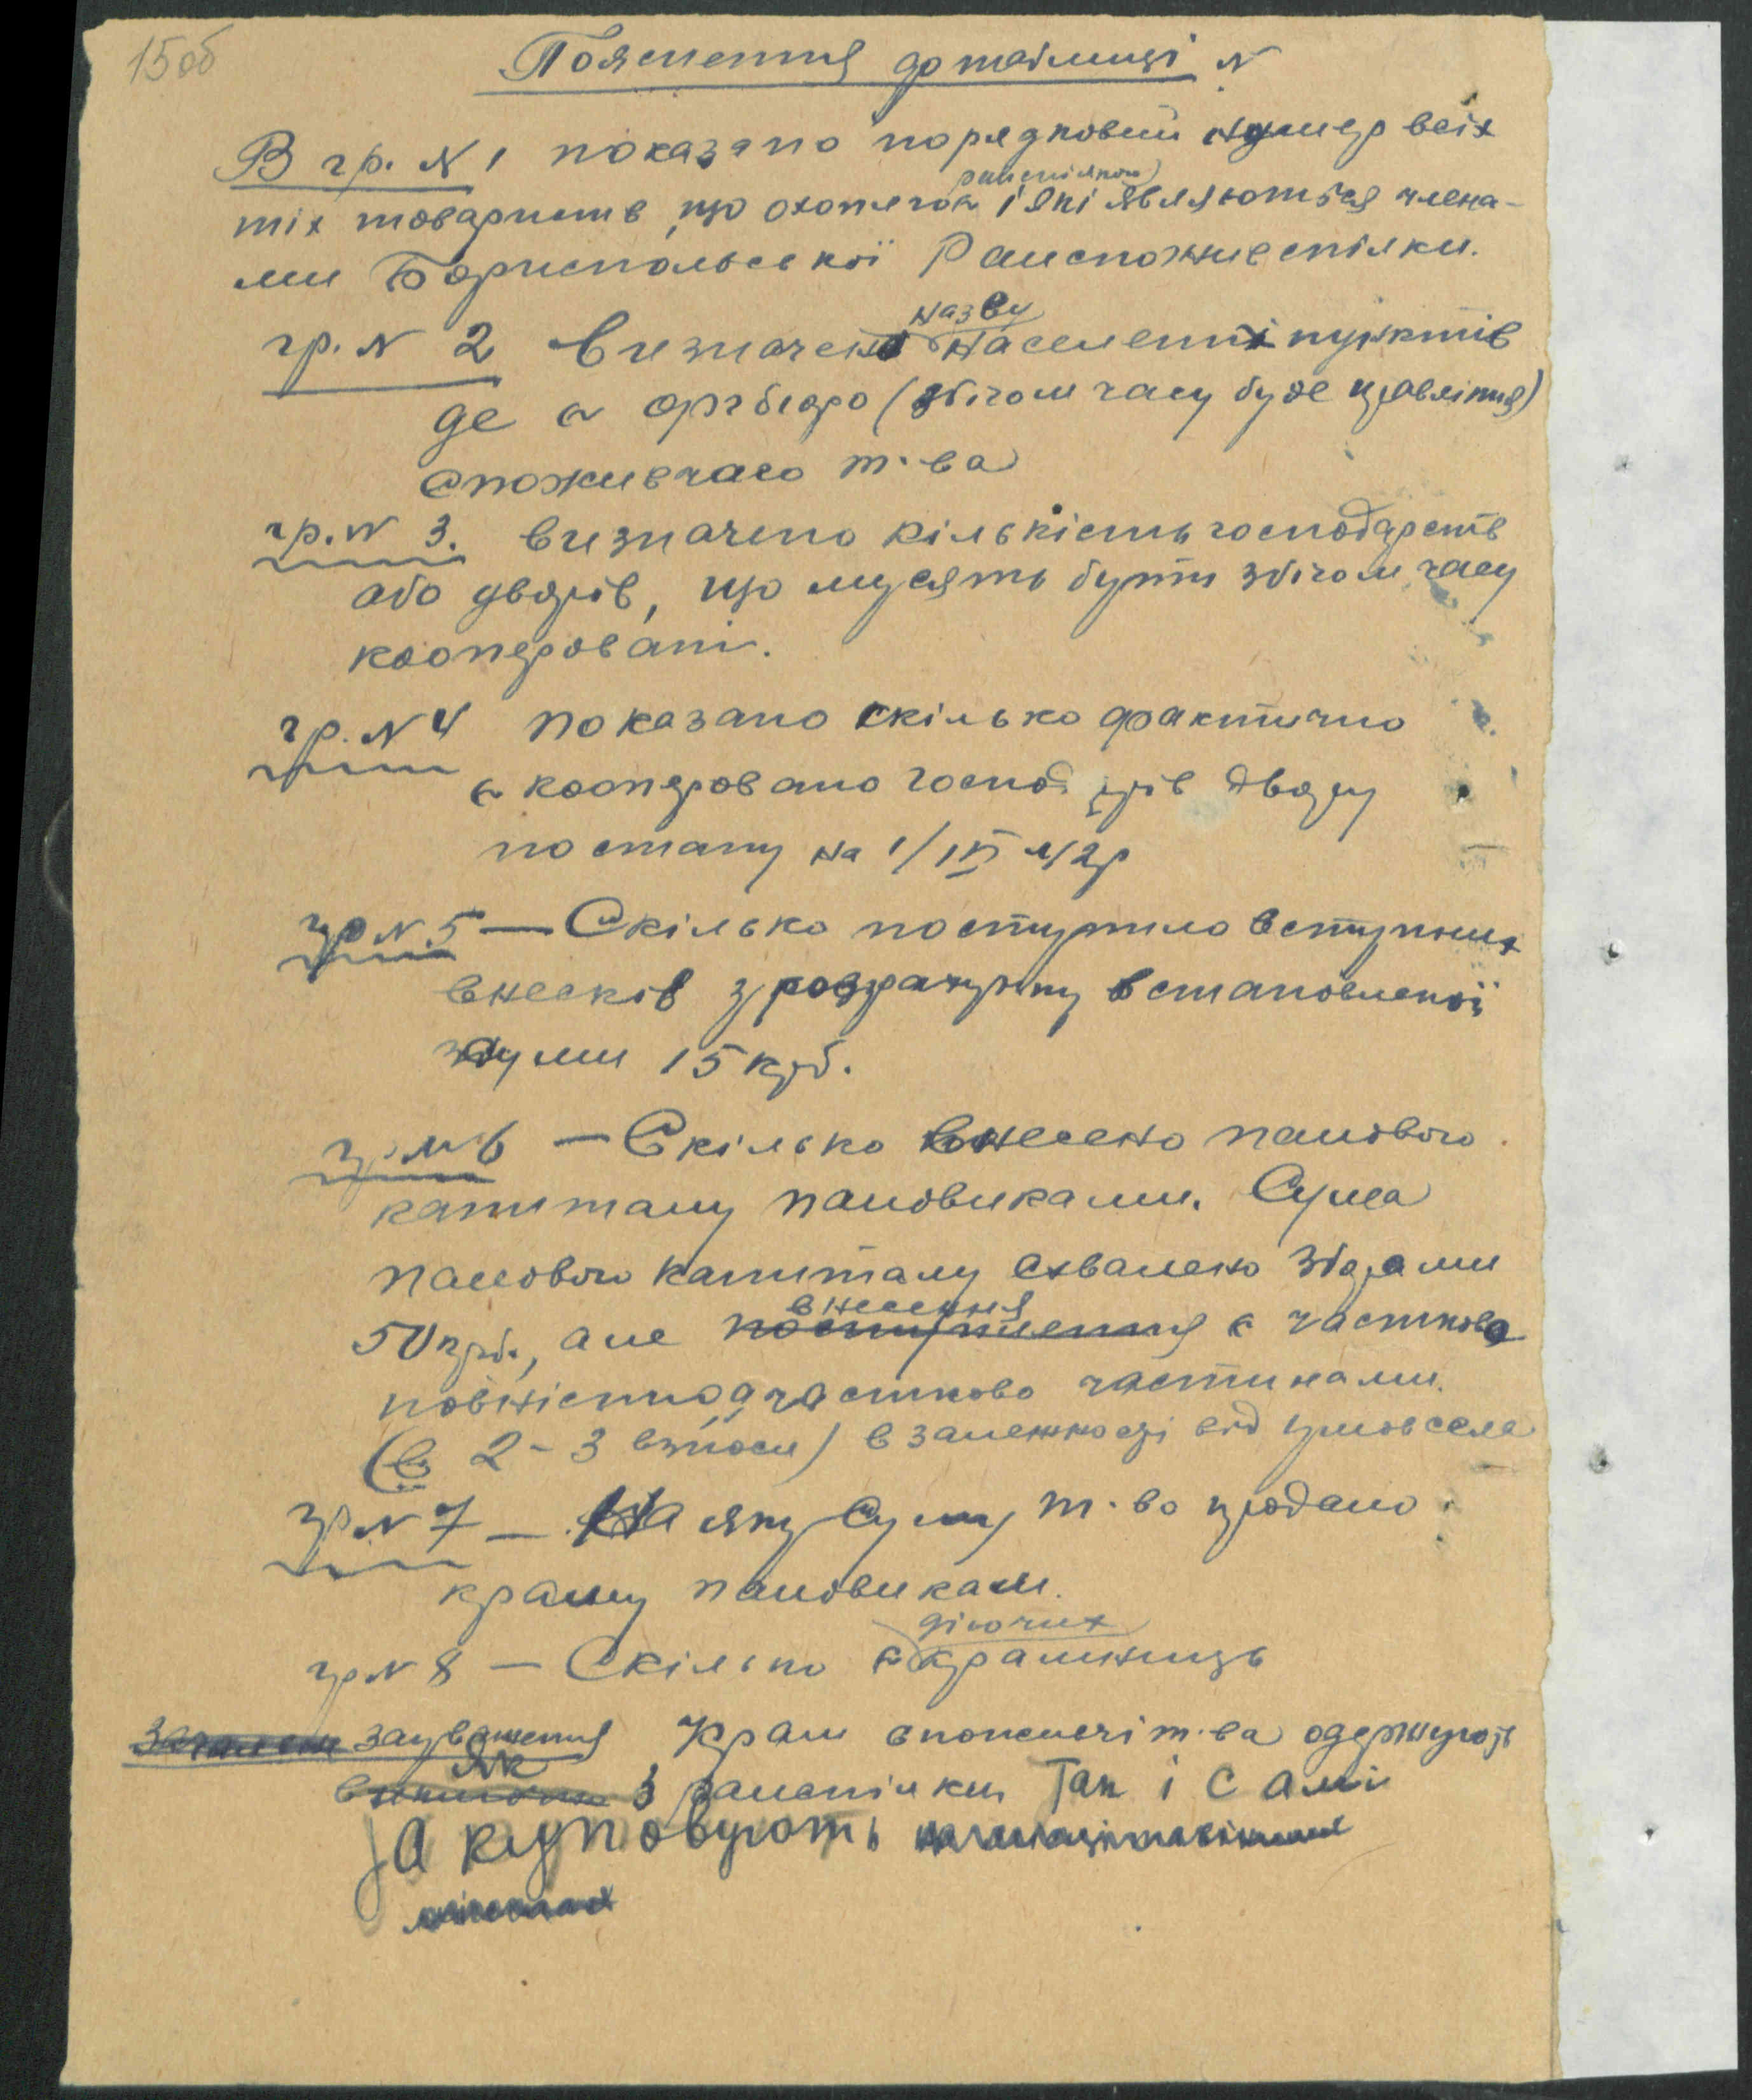 15об
Пояснення до таблиці №
В гр. № 1 показано порядковий нумер всіх
райспілкою
тіх товариств, що охоплює і які являються члена-
ми Бориспольської Райспоживспілки.
назву
гр. № 2 визначено населених пунктів
де є оргбюро (збігом часу буде правління)
споживчаго т-ва
гр. № 3. визначено кількість господарств
або дворів, що мусять бути збігом часу
кооперовані.
гр. № 4 показано скілько фактично
є кооперовано господарів двору
по стану на 1/IX 42р
гр № 5 — Скілько поступило вступних
внесків з розрахунку встановленої
суми 15 крб.
гр. № 6 — Скілько внесено пайового
капиталу пайовиками. Сума
пайового капиталу схвалено зборами
внесення
50 крб., але поступлення є часткове
повністю а частково частинами.
(в 2-3 взноси) в залежності від умов села
гр № 7 — На яку суму т-во продано
краму пайовикам.
діючих
гр № 8 — Скілько є крамниць
зауваження Крам споживчі т-ва одержують
як
з райспілки так і самі
закуповують